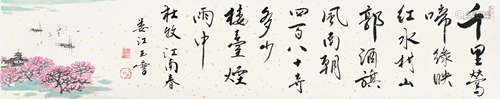 千里莺
啼绿映
红水村山
郭酒旗
风南朝
四百八十寺
多少
楼台烟
雨中
杜牧江南春
娄江玉雪